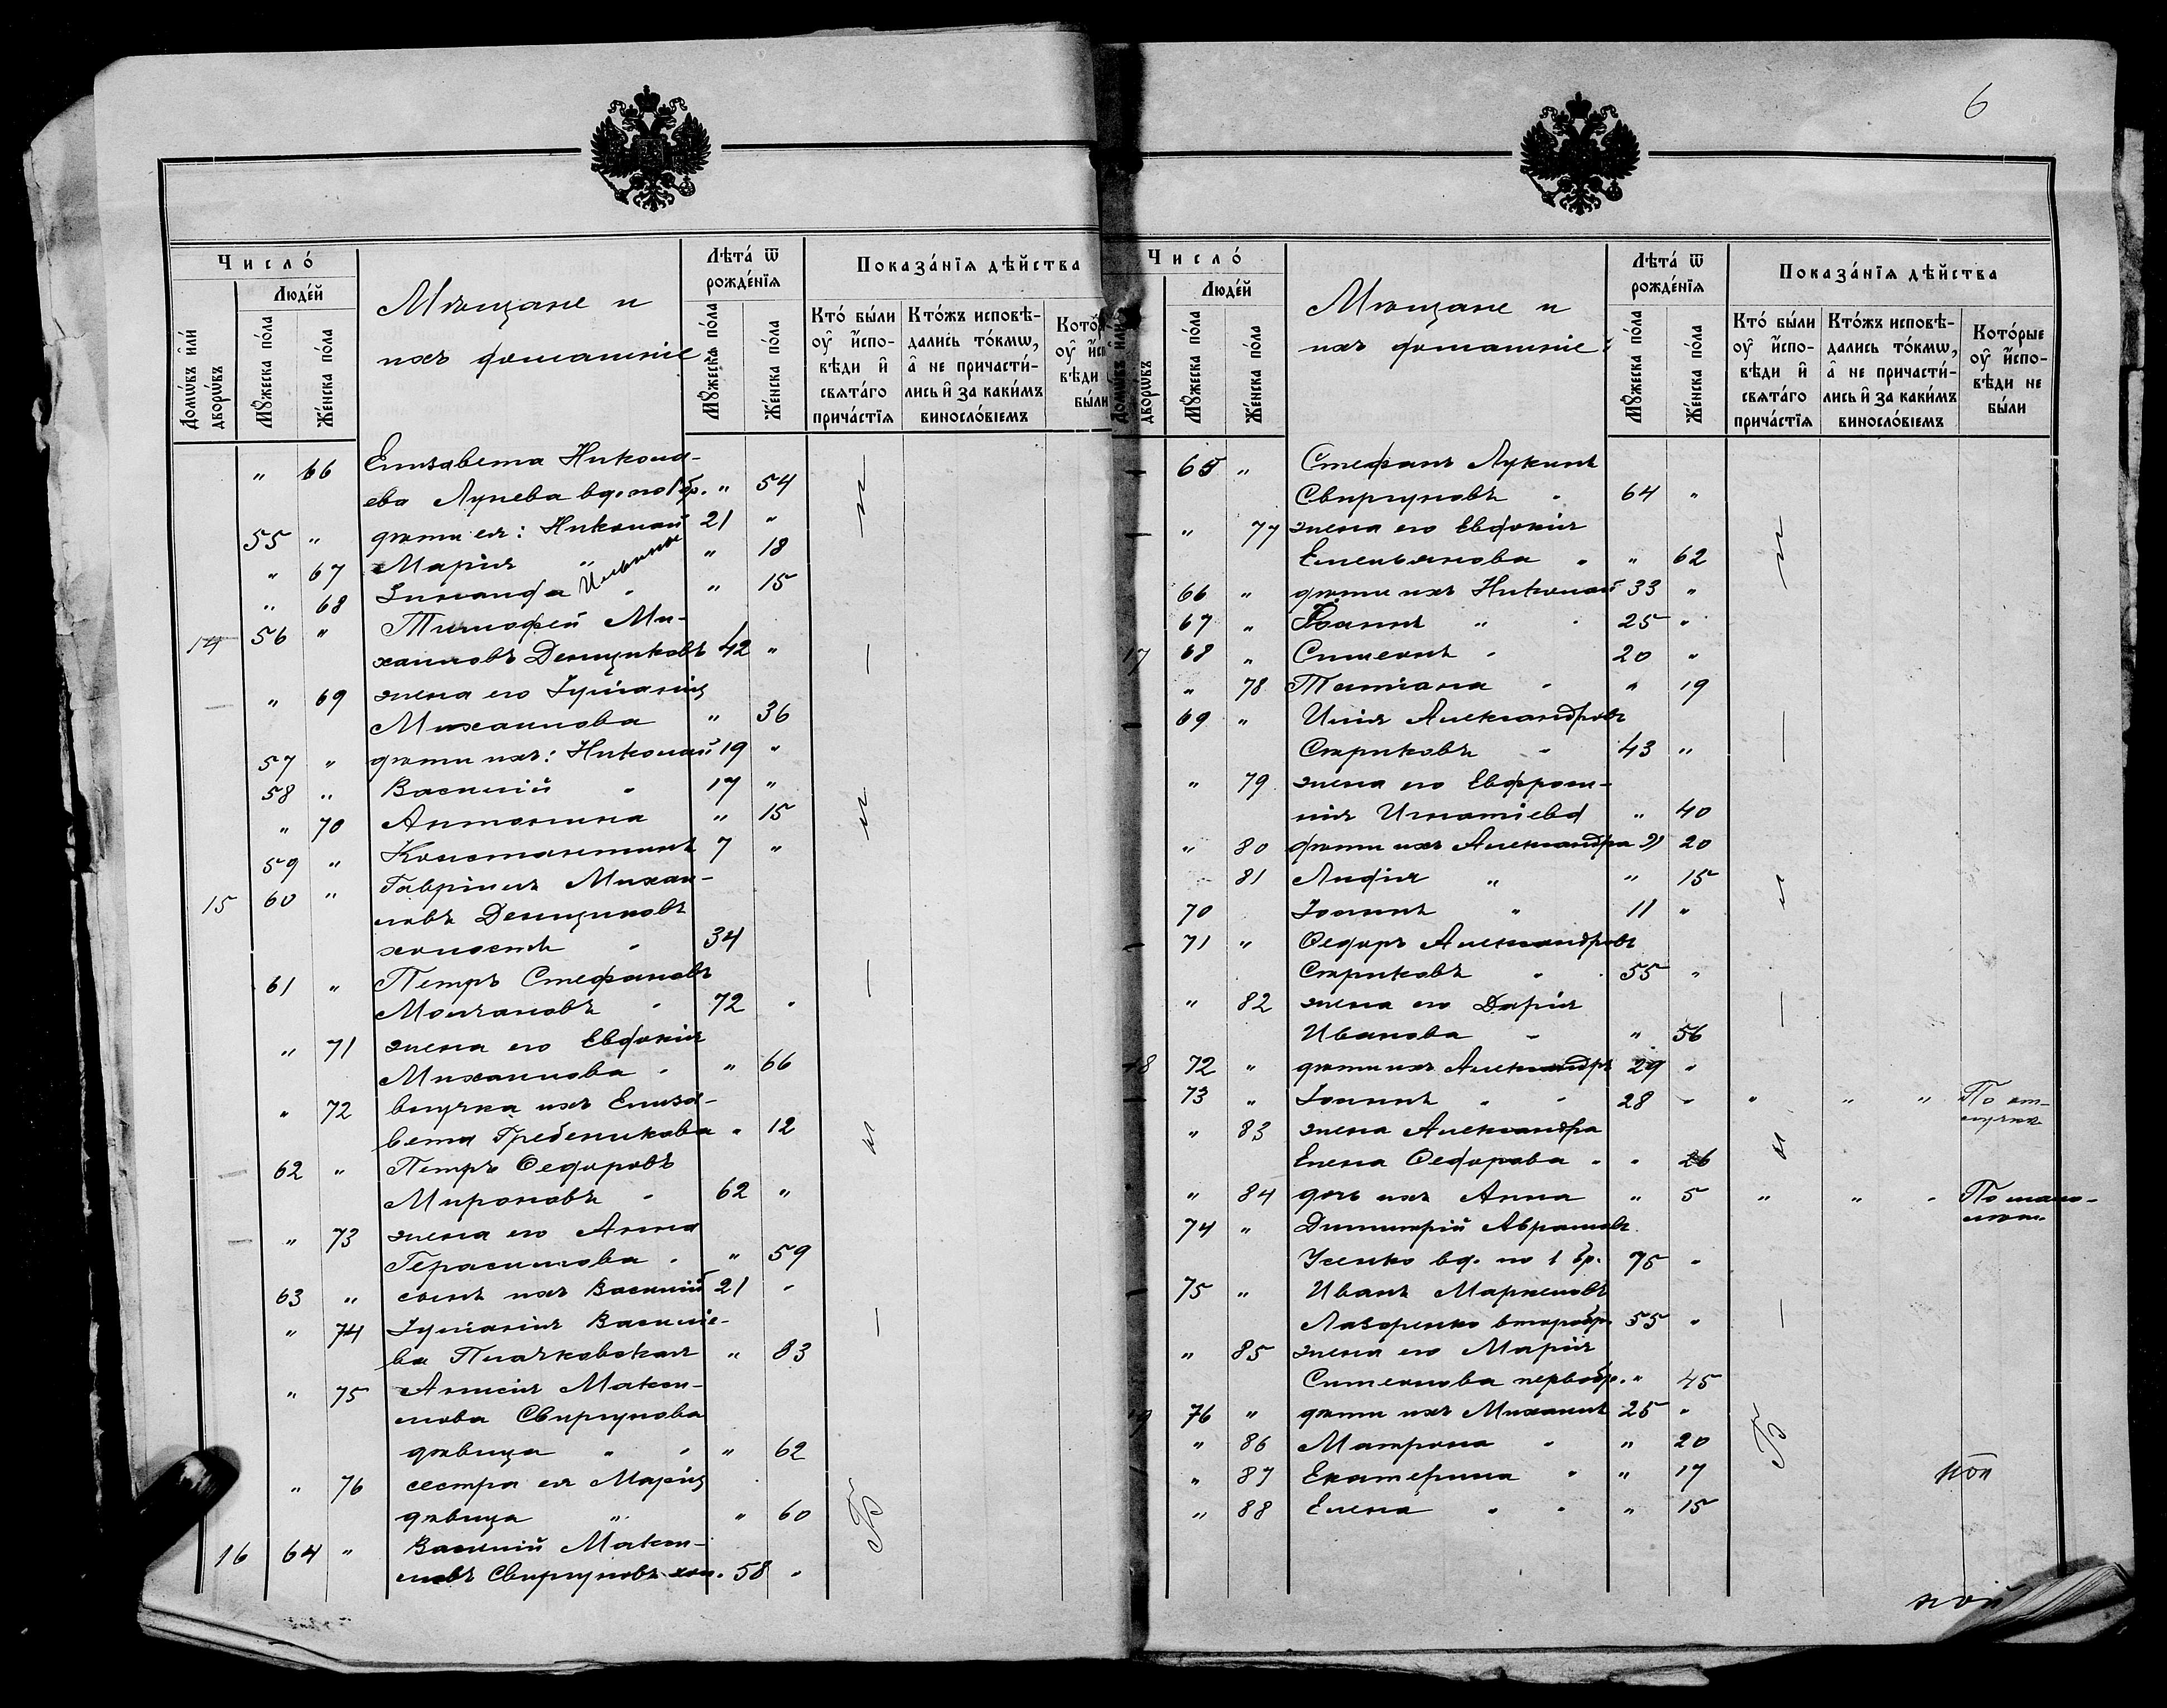 6
Число́
Люде́й
Домѡвъ и҆лѝ дворѡвъ
Мꙋ́жеска по́ла
Же́нска по́ла
Мѣщане и
ихъ домашніе
Лѣта́ ѿ
рожде́нїѧ
Мꙋ́жеска по́ла
Же́нска по́ла
Показа́нїѧ дѣ́йства
Кто̀ бы́ли
оу҆ и҆спо-
вѣди и҆
свѧта́го
прича́стїѧ
Кто́жъ исповѣ-
дались то́кмѡ,
а҆ не причасти́-
лись и҆ за каки́мъ
винослóвіемъ
" 66 Елизавета Никола-
ева Лунева вд. по 1 бр. " 54
55 " дѣти ея: Николай 21 "
" 67 Марія " " 18
" 68 Зинаида Ильины " 15
14 56 " Тимофей Ми-
хаиловъ Денщиковъ 42 "
" 69 жена его Іуліанія
Михаилова " 36
57 " дѣти ихъ: Николай 19 "
58 " Василій " 17 "
" 70 Антонина " 15
59 " Константинъ 7 "
15 60 " Гавріилъ Михаи-
ловъ Денщиковъ
холостъ " 34
61 " Петръ Стефановъ
Молчановъ " 72 "
" 71 жена его Евдокія
Михаилова " " 66
" 72 внучка ихъ Елиза-
вета Гребеникова " 12
62 " Петръ Ѳедоровъ
Мироновъ " 62 "
" 73 жена его Анна
Герасимова " " 59
63 " сынъ ихъ Василій 21 "
" 74 Іуліанія Василіе-
ва Плачковская " 83
" 75 Анисія Макси-
мова Свиргунова
дѣвица " " " 62
" 76 сестра ея Марія
дѣвица " " 60
16 64 " Василій Макси-
мовъ Свиргуновъ хол. 58 "
и
с
и
Число́
Люде́й
Домѡвъ и҆лѝ дворѡвъ
Мꙋ́жеска по́ла
Же́нска по́ла
Мѣщане и
ихъ домашніе
Лѣта́ ѿ
рожде́нїѧ
Мꙋ́жеска по́ла
Же́нска по́ла
Показа́нїѧ дѣ́йства
Кто̀ бы́ли
оу҆ и҆спо-
вѣди и҆
свѧта́го
прича́стїѧ
Кто́жъ исповѣ-
дались то́кмѡ,
а҆ не причасти́-
лись и҆ за каки́мъ
винослóвіемъ
Кото́рые
оу҆ и҆спо-
вѣди не
бы́ли
65 " Стефанъ Лукинъ
Свиргуновъ " 64 "
" 77 жена его Евдокія
Емельянова " " 62
66 " дѣти ихъ Николай 33 "
67 " Іоаннъ " " 25 "
17 68 " Симеонъ " 20 "
" 78 Татіана " " 19
69 " Илія Александровъ
Стриковъ " 43 "
" 79 жена его Евфроси-
нія Игнатіева " 40
" 80 дѣти ихъ Александра " 20
81 Лидія " " 15
70 Іоаннъ " 11 "
71 " Ѳедоръ Александровъ
Стриковъ " 55 "
" 82 жена его Дарія
Иванова " " 56
18 72 " дѣти ихъ Александръ 29 "
73 " Іоаннъ " " 28 " " " " По от-
лучкѣ
" 83 жена Александра
Елена Ѳедорова " " 26
" 84 дочь ихъ Анна " 5 " " " По мало-
лѣт.
74 " Димитрій Аврамовъ
Усенко вд. по 1 бр. 75 "
75 " Иванъ Маркеловъ
Лазоренко второбр. 55 "
" 85 жена его Марія
Симеонова первобр. " 45
19 76 " дѣти ихъ Михаилъ 25 "
" 86 Матрона " " 20
" 87 Екатерина " " 17
" 88 Елена " " " 15